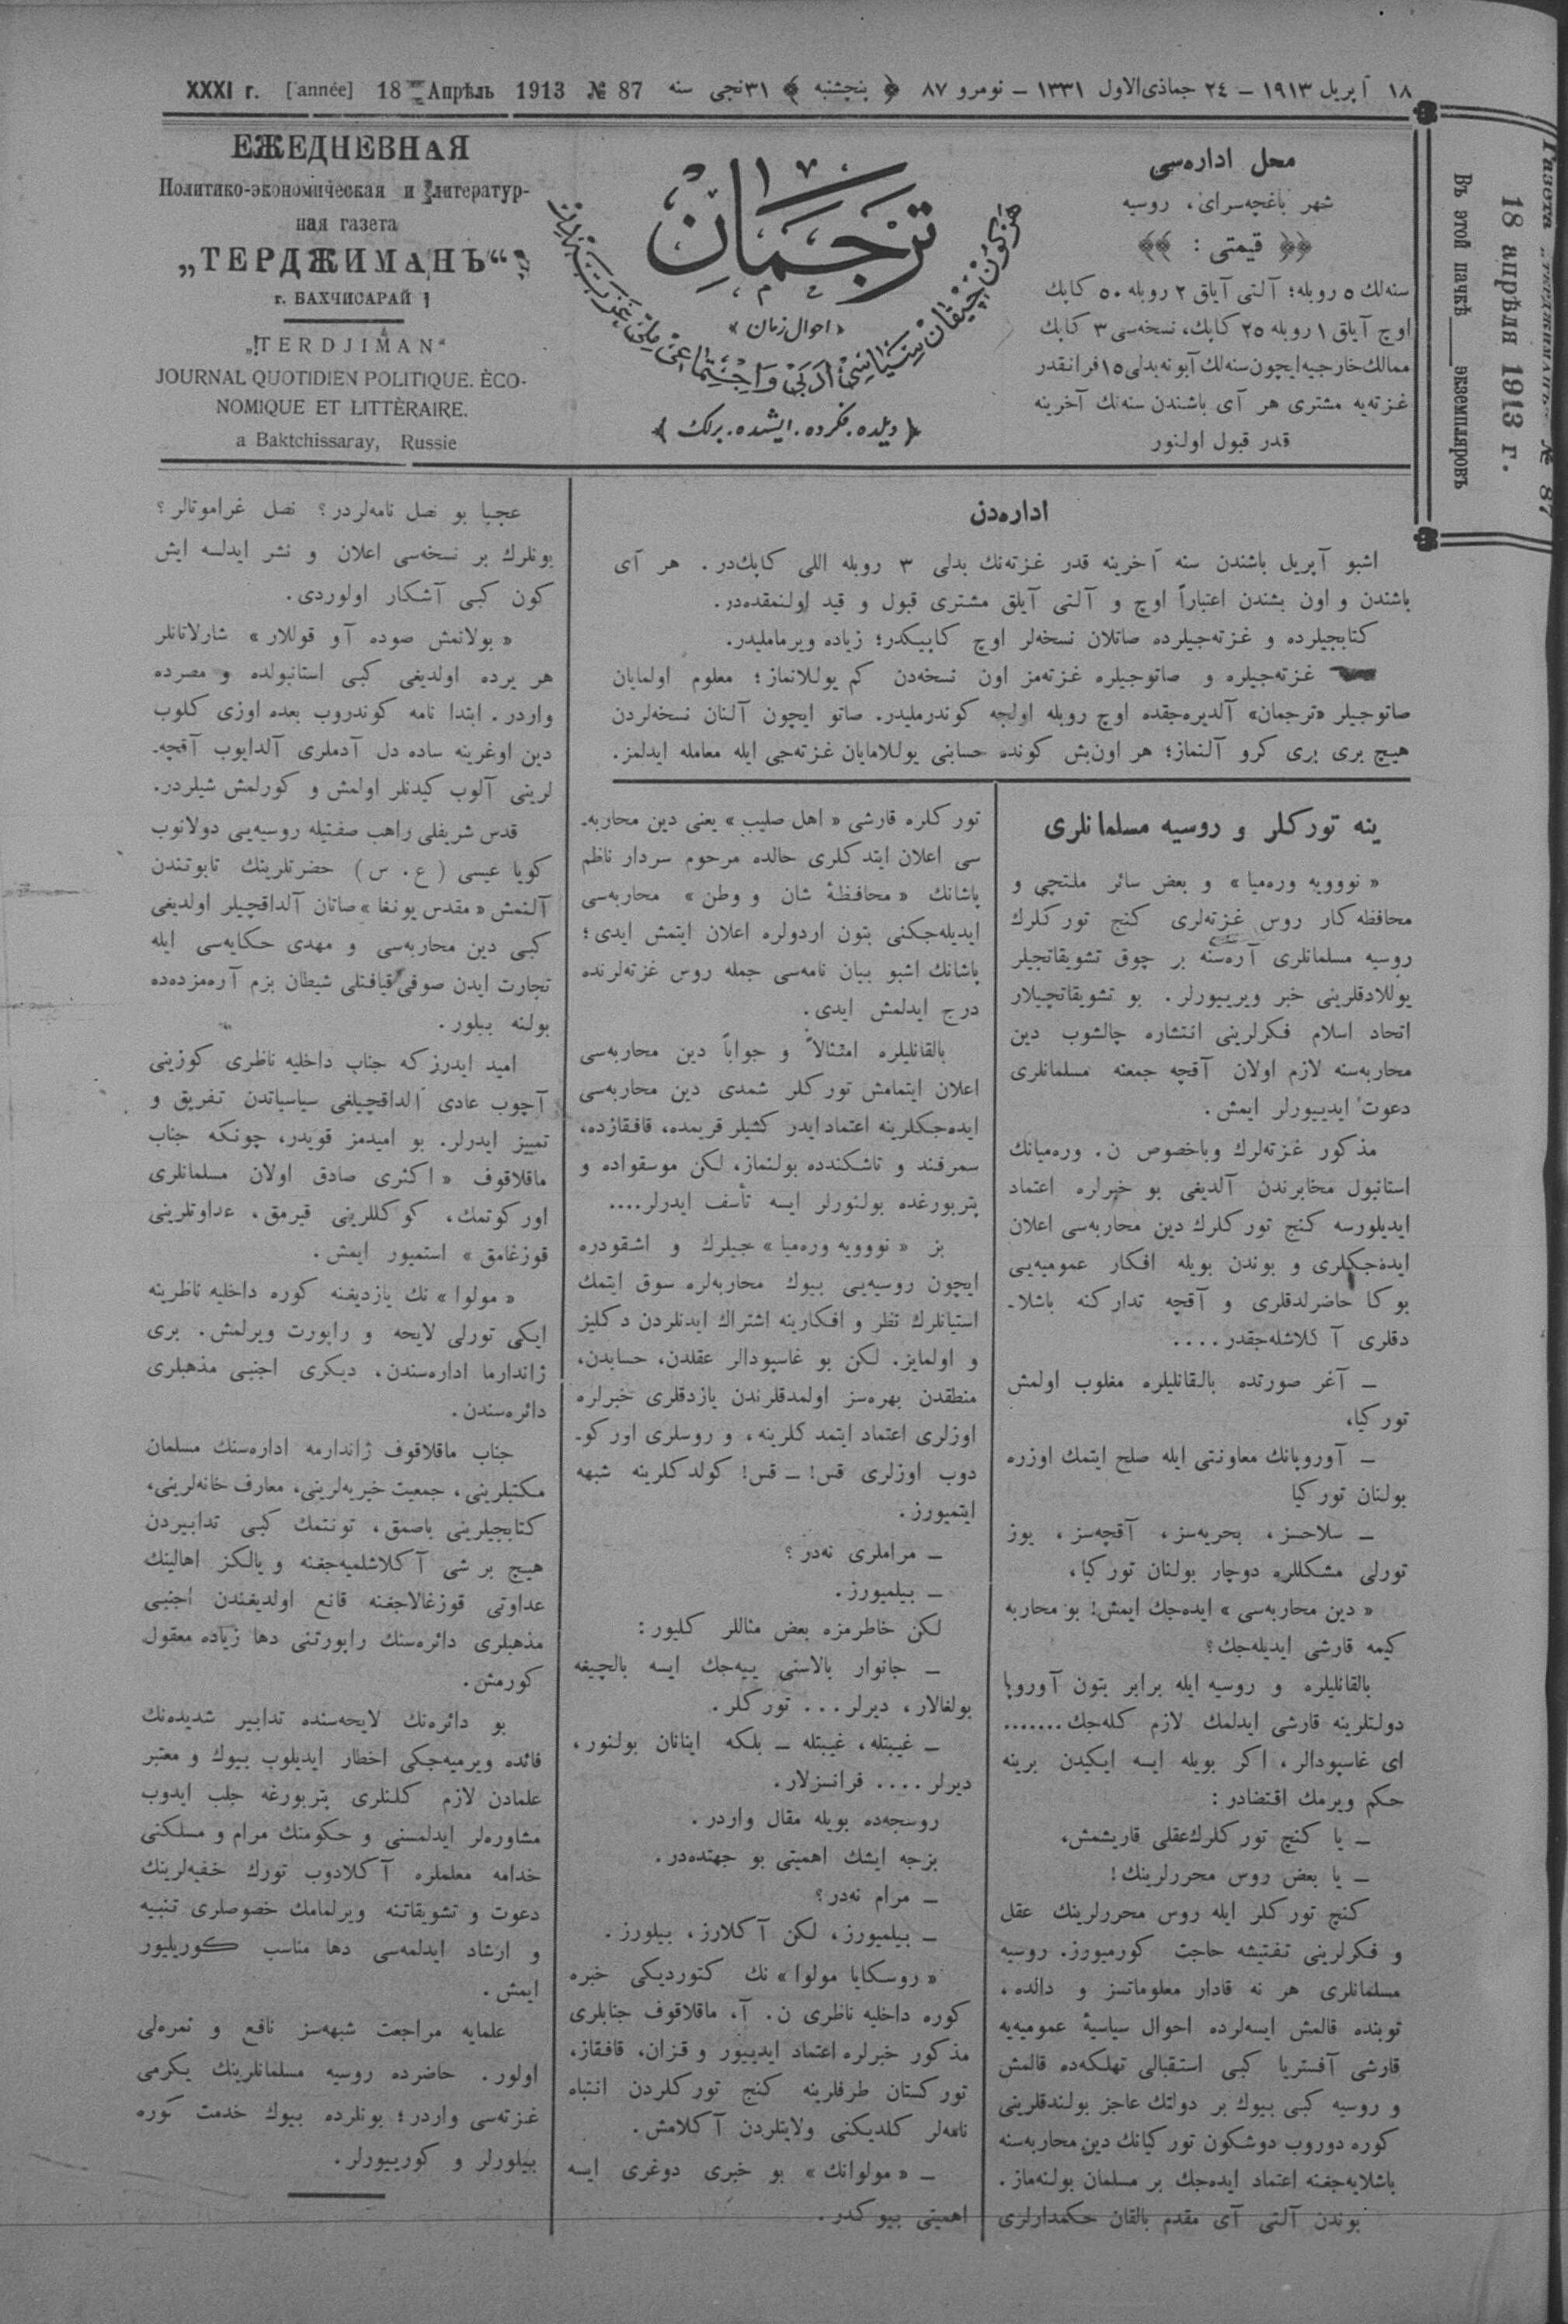 ١٨ آپریل ١٩١٣ – ٢٤ جماذی‌الاول ١٣٣١ – نومرو ٨٧ ﴿ پنجشنبه ﴾ ٣١نجی سنه
XXXI г. [année] 18 Апрѣль 1913 № 87
ЕЖЕДНЕВНАЯ
Политико-экономическая и литератур-
ная газета
„ТЕРДЖИМАНЪ“
г. БАХЧИСАРАЙ
„TERDJIMAN“
JOURNAL QUOTIDIEN POLITIQUE. ÈCO-
NOMIQUE ET LITTÈRAIRE.
a Baktchissaray, Russie
ترجمان
« احوال زمان »
﴿ دیلده. فکرده. ایشده. برلك ﴾
محل اداره‌سی
شهر باغچه‌سرای، روسیه
قیمتی :
سنه‌لك ٥ روبله؛ آلتی آیلق ٢ روبله ٥٠ کاپك
اوچ آیلق ١ روبله ٢٥ کاپك، نسخه‌سی ٣ کاپك
ممالك خارجیه ایچون سنه‌لك آبونه بدلی ١٥ فرانقدر
غزته‌یه مشتری هر آی باشندن سنه‌نك آخرینه
قدر قبول اولنور
Газета „Терджиманъ“ № 87
18 апрѣля 1913 г.
Въ этой пачкѣ ____ экземпляровъ
اداره‌دن
اشبو آپریل باشندن سنه آخرینه قدر غزته‌نك بدلی ٣ روبله اللی کاپك‌در. هر آی
باشندن و اون بشندن اعتباراً اوچ و آلتی آیلق مشتری قبول و قید اولنمقده‌در.
کتابجیلرده و غزته‌جیلرده صاتلان نسخه‌لر اوچ کاپیکدر؛ زیاده ویرماملیدر.
غزته‌جیلره و صاتوجیلره غزته‌مز اون نسخه‌دن کم یوللانماز؛ معلوم اولمایان
صاتوجیلر «ترجمان» آلدیره‌جقده اوچ روبله اولجه کوندرملیدر. صاتو ایچون آلنان نسخه‌لردن
هیچ بری بری کرو آلنماز؛ هر اون‌بش کونده حسابنی یوللامایان غزته‌جی ایله معامله ایدلمز.
ینه تورکلر و روسیه مسلمانلری
« نوویه وره‌میا » و بعض سائر ملتچی و
محافظه کار روس غزته‌لری کنج تورکلرك
روسیه مسلمانلری آره‌سنه بر چوق تشویقاتجیلر
یوللادقلرینی خبر ویرییورلر. بو تشویقاتچیلار
اتحاد اسلام فکرلرینی انتشاره چالشوب دین
محاربه‌سنه لازم اولان آقچه جمعنه مسلمانلری
دعوت ایدییورلر ایمش.
مذکور غزته‌لرك وباخصوص ن. وره‌میانك
استانبول مخابرندن آلدیغی بو خبرلره اعتماد
ایدیلورسه کنج تورکلرك دین محاربه‌سی اعلان
ایده‌جکلری و بوندن بویله افکار عمومیه‌یی
بوکا حاضرلدقلری و آقچه تدارکنه باشلا-
دقلری آکلاشله‌جقدر....
– آغر صورتده بالقانلیلره مغلوب اولمش
تورکیا،
– آوروپانك معاونتی ایله صلح ایتمك اوزره
بولنان تورکیا
– سلاحسز، بحریه‌سز، آقچه‌سز، یوز
تورلی مشکللره دوچار بولنان تورکیا،
« دین محاربه‌سی » ایده‌جك ایمش! بو محاربه
کیمه قارشی ایدیله‌جك؟
بالقانلیلره و روسیه ایله برابر بتون آوروپا
دولتلرینه قارشی ایدلمك لازم کله‌جك.......
ای غاسپودالر، اکر بویله ایسه ایکیدن برینه
حکم ویرمك اقتضادر :
– یا کنج تورکلرك عقلی قاریشمش،
– یا بعض روس محررلرینك!
کنج تورکلر ایله روس محررلرینك عقل
و فکرلرینی تفتیشه حاجت کورمیورز. روسیه
مسلمانلری هر نه قادار معلوماتسز و دالده،
توبنده قالمش ایسه‌لرده احوال سیاسیهٔ عمومیه‌یه
قارشی آفستریا کبی استقبالی تهلکه‌ده قالمش
و روسیه کبی بیوك بر دولتك عاجز بولندقلرینی
کوره دوروب دوشکون تورکیانك دین محاربه‌سنه
باشلایه‌جغنه اعتماد ایده‌جك بر مسلمان بولنه‌ماز.
بوندن آلتی آی مقدم بالقان حکمدارلری
تورکلره قارشی « اهل صلیب » یعنی دین محاربه-
سی اعلان ایتدکلری حالده مرحوم سردار ناظم
پاشانك « محافظهٔ شان و وطن » محاربه‌سی
ایدیله‌جکنی بتون اردولره اعلان ایتمش ایدی؛
پاشانك اشبو بیان نامه‌سی جمله روس غزته‌لرنده
درج ایدلمش ایدی.
بالقانلیلره امتثالاً و جواباً دین محاربه‌سی
اعلان ایتمامش تورکلر شمدی دین محاربه‌سی
ایده‌جکلرینه اعتماد ایدر کشیلر قریمده، قافقازده،
سمرقند و تاشکندده بولنماز، لکن موسقواده و
پتربورغده بولنورلر ایسه تأسف ایدرلر....
بز « نوویه وره‌میا » جیلرك و اشقودره
ایچون روسیه‌یی بیوك محاربه‌لره سوق ایتمك
استیانلرك نظر و افکارینه اشتراك ایدنلردن دکلیز
و اولمایز. لکن بو غاسپودالر عقلدن، حسابدن،
منطقدن بهره‌سز اولمدقلرندن یازدقلری خبرلره
اوزلری اعتماد ایتمدکلرینه، و روسلری اورکو-
دوب اوزلری قس! – قس! کولدکلرینه شبهه
ایتمیورز.
– مراملری نه‌در؟
– بیلمیورز.
لکن خاطرمزه بعض مثاللر کلیور:
– جانوار بالاسنی ییه‌جك ایسه بالچیغه
بولغالار، دیرلر... تورکلر.
– غیبتله، غیبتله – بلکه اینانان بولنور،
دیرلر.... فرانسزلار.
روسجه‌ده بویله مقال واردر.
بزجه ایشك اهمیتی بو جهتده‌در.
– مرام نه‌در؟
– بیلمیورز، لکن آکلارز، بیلورز.
« روسکایا مولوا » نك کتوردیکی خبره
کوره داخلیه ناظری ن. آ، ماقلاقوف جنابلری
مذکور خبرلره اعتماد ایدییور و قزان، قافقاز،
تورکستان طرفلرینه کنج تورکلردن انتباه
نامه‌لر کلدیکنی ولایتلردن آکلامش.
– « مولوانك » بو خبری دوغری ایسه
اهمیتی بیوکدر.
عجبا بو نصل نامه‌لردر؟ نصل غراموتالر؟
بونلرك بر نسخه‌سی اعلان و نشر ایدلسه ایش
کون کبی آشکار اولوردی.
« بولانمش صوده آو قوللار » شارلاتانلر
هر یرده اولدیغی کبی استانبولده و مصرده
واردر. ابتدا نامه کوندروب بعده اوزی کلوب
دین اوغرینه ساده دل آدملری آلدایوب آقچه-
لرینی آلوب کیدنلر اولمش و کورلمش شیلردر.
قدس شریفلی راهب صفتیله روسیه‌یی دولانوب
کویا عیسی (ع. س) حضرتلرینك تابوتندن
آلنمش « مقدس یونغا » صاتان آلداقچیلر اولدیغی
کبی دین محاربه‌سی و مهدی حکایه‌سی ایله
تجارت ایدن صوفی قیافتلی شیطان بزم آره‌مزده‌ده
بولنه بیلور.
امید ایدرز که جناب داخلیه ناظری کوزینی
آچوب عادی آلداقچیلغی سیاسیاتدن تفریق و
تمییز ایدرلر. بو امیدمز قویدر، چونکه جناب
ماقلاقوف « اکثری صادق اولان مسلمانلری
اورکوتمك، کوکللرینی قیرمق، عداوتلرینی
قوزغامق » استمیور ایمش.
« مولوا » نك یازدیغنه کوره داخلیه ناظرینه
ایکی تورلی لایحه و راپورت ویرلمش. بری
ژاندارما اداره‌سندن، دیکری اجنبی مذهبلری
دائره‌سندن.
جناب ماقلاقوف ژاندارمه اداره‌سنك مسلمان
مکتبلرینی، جمعیت خیریه‌لرینی، معارف خانه‌لرینی،
کتابجیلرینی باصمق، تونتمك کبی تدابیردن
هیچ بر شی آکلاشلمیه‌جغنه و یالکز اهالینك
عداوتی قوزغالاجغنه قانع اولدیغندن اجنبی
مذهبلری دائره‌سنك راپورتنی دها زیاده معقول
کورمش.
بو دائره‌نك لایحه‌سنده تدابیر شدیده‌نك
فائده ویرمیه‌جکی اخطار ایدیلوب بیوك و معتبر
علمادن لازم کلنلری پتربورغه جلب ایدوب
مشاوره‌لر ایدلمسنی و حکومتك مرام و مسلکنی
خدامه معلملره آکلادوب تورك خفیه‌لرینك
دعوت و تشویقاتنه ویرلمامك خصوصلری تنبیه
و ارشاد ایدلمه‌سی دها مناسب کوریلیور
ایمش.
علمایه مراجعت شبهه‌سز نافع و ثمره‌لی
اولور. حاضرده روسیه مسلمانلرینك یکرمی
غزته‌سی واردر؛ بونلرده بیوك خدمت کوره
بیلورلر و کورییورلر.